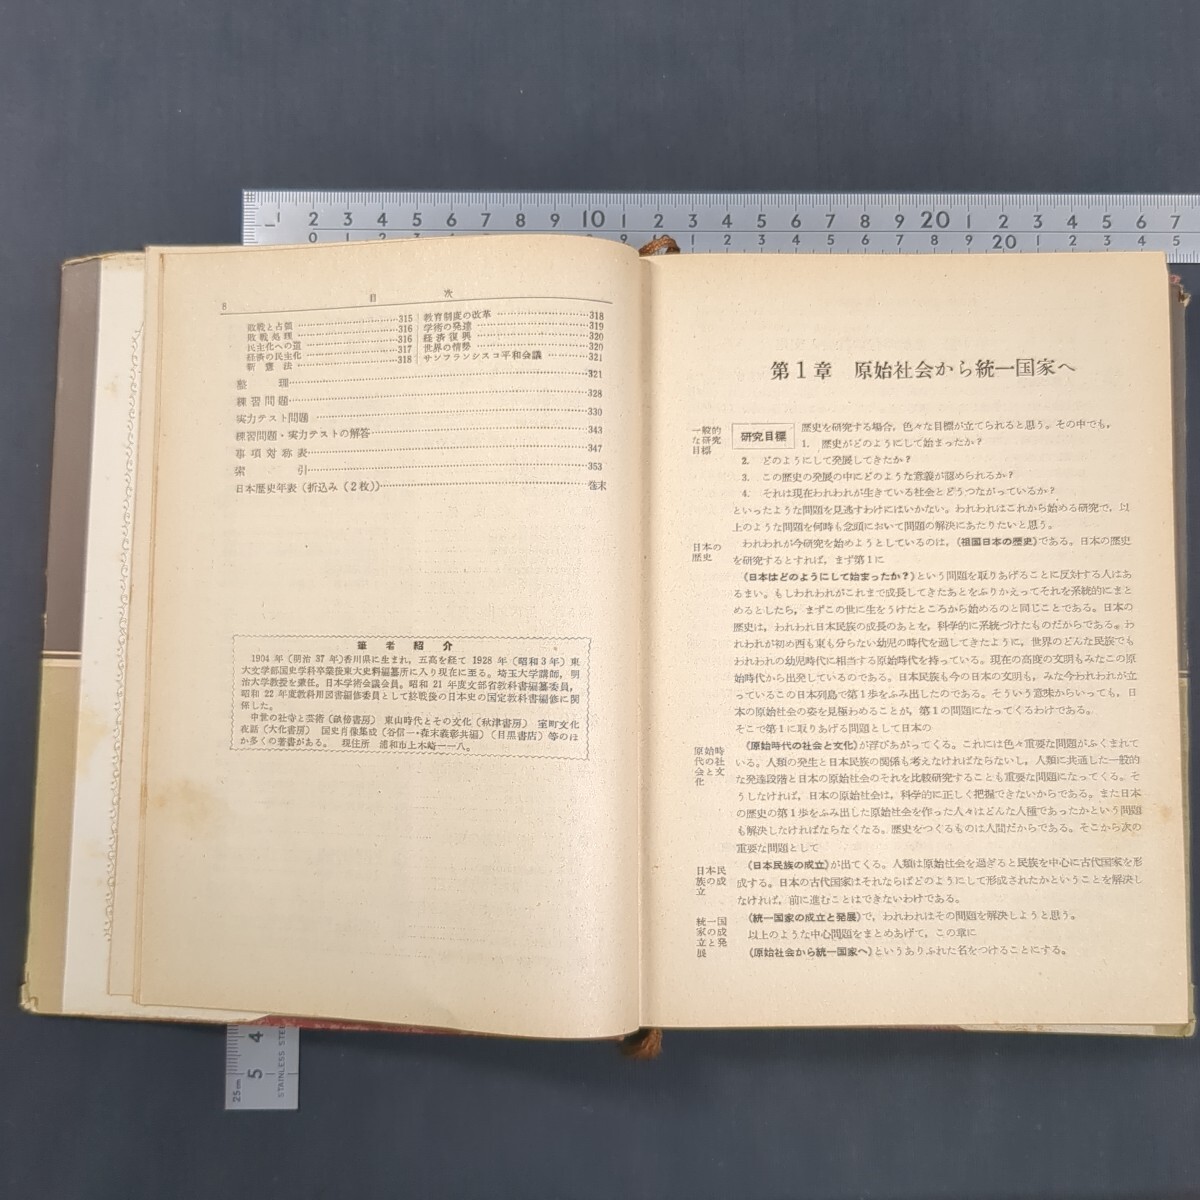 1 2 3 4 5 6 7 8 9 10 1 2 3 4 5 6 7 8 9 20 1 2 3 4 5 6 7
8
目 次
敗戦と占領 315
敗戦処理 316
民主化への道 316
経済の民主化 317
新憲法 318
教育制度の改革 318
学術の発達 319
経済復興 320
世界の情勢 320
サンフランシスコ平和会議 321
整理 321
練習問題 328
実力テスト問題 330
練習問題・実力テストの解答 343
事項対称表 347
索引 353
日本歴史年表(折込み(2枚)) 巻末
筆者紹介
1904年(明治37年)香川県に生まれ,五高を経て1928年(昭和3年)東
大文学部国史学科卒業後東大史料編纂所に入り現在に至る。埼玉大学講師,明
治大学教授を兼任。日本学術会議会員。昭和21年度文部省教科書編纂委員,
昭和22年度教科用図書編修委員として終戦後の日本史の国定教科書編修に関
係した。
中世の社寺と芸術(畝傍書房) 東山時代とその文化(秋津書房) 室町文化
夜話(大化書房) 国史肖像集成(谷信一・森末義彰共編)(目黒書店)等のほ
か多くの著書がある。 現住所 浦和市上木崎一一八。
第1章 原始社会から統一国家へ
一般的
な研究
目標
研究目標
歴史を研究する場合,色々な目標が立てられると思う。その中でも,
1. 歴史がどのようにして始まったか?
2. どのようにして発展してきたか?
3. この歴史の発展の中にどのような意義が認められるか?
4. それは現在われわれが生きている社会とどうつながっているか?
といったような問題を見逃すわけにはいかない。われわれはこれから始める研究で,以
上のような問題を何時も念頭において問題の解決にあたりたいと思う。
日本の
歴史
われわれが今研究を始めようとしているのは,(祖国日本の歴史)である。日本の歴史
を研究するとすれば,まず第1に
(日本はどのようにして始まったか?)という問題を取りあげることに反対する人はあ
るまい。もしわれわれがこれまで成長してきたあとをふりかえってそれを系統的にまと
めるとしたら,まずこの世に生をうけたところから始めるのと同じことである。日本の
歴史は,われわれ日本民族の成長のあとを,科学的に系統づけたものだからである。わ
れわれが初め西も東も分らない幼児の時代を過してきたように,世界のどんな民族でも
われわれの幼児時代に相当する原始時代を持っている。現在の高度の文明もみなこの原
始時代から出発しているのである。日本民族も今の日本の文明も,みな今われわれが立
っているこの日本列島で第1歩をふみ出したのである。そういう意味からいっても,日
本の原始社会の姿を見極わめることが,第1の問題になってくるわけである。
そこで第1に取りあげる問題として日本の
原始時
代の社
会と文
化
(原始時代の社会と文化)が浮びあがってくる。これには色々重要な問題がふくまれて
いる。人類の発生と日本民族の関係も考えなければならないし,人類に共通した一般的
な発達段階と日本の原始社会のそれを比較研究することも重要な問題になってくる。そ
うしなければ,日本の原始社会は,科学的に正しく把握できないからである。また日本
の歴史の第1歩をふみ出した原始社会を作った人々はどんな人種であったかという問題
も解決しなければならなくなる。歴史をつくるものは人間だからである。そこから次の
重要な問題として
日本民
族の成
立
(日本民族の成立)が出てくる。人類は原始社会を過ぎると民族を中心に古代国家を形
成する。日本の古代国家はそれならばどのようにして形成されたかということを解決し
なければ,前に進むことはできないわけである。
統一国
家の成
立と発
展
(統一国家の成立と発展)で,われわれはその問題を解決しようと思う。
以上のような中心問題をまとめあげて,この章に
(原始社会から統一国家へ)というありふれた名をつけることにする。
4
5
25cm
STAINLESS STE